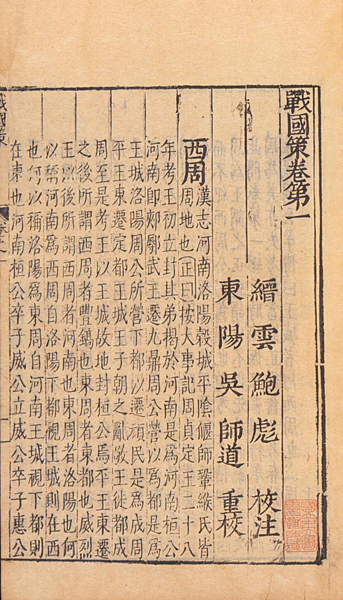 戰國策卷第一
縉雲鮑彪校注
東陽吳師道重校
西周
漢志河南洛陽穀城平陰偃師鞏緱氏皆
周地也正曰按大事記周貞定王二十八
年考王初立封其弟揭於河南是爲河南桓公
河南即郟鄏武王遷九鼎周公營以爲都是爲
王城洛陽周公所營下都以遷頑民是爲成周
平王東遷定都於王城王子朝之亂敬王徙都成
周至是考王以王城故地封桓公焉平王東遷
之後所謂西周者豐鎬也東周者東都也威烈
王以後所謂西周者河南也東周者洛陽也何
以稱河南爲西周自洛陽下都視王城則在西
也何以稱洛陽爲東周自河南王城視下都則
在東也河南桓公卒子威公立威公卒子惠公